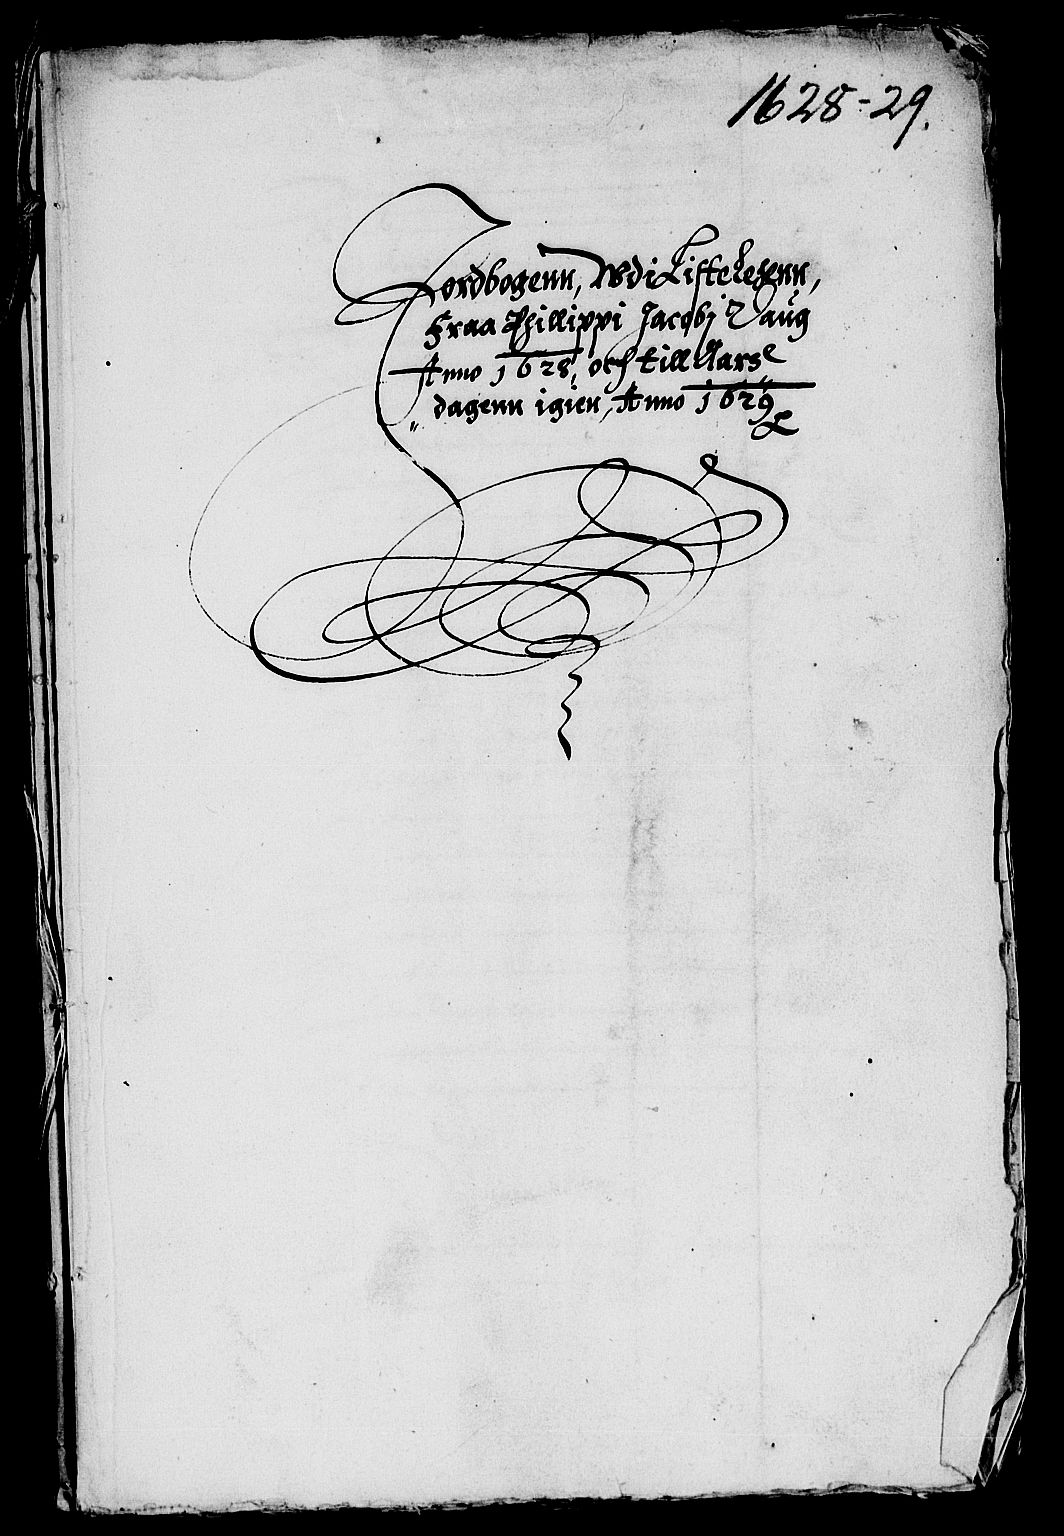 1628-29.
Jordbogenn, Wdi Listelehnn,
Fraa Phillippi Jacobj Daug
Anno 1628, och till Aars
dagenn igien, Anno 1629